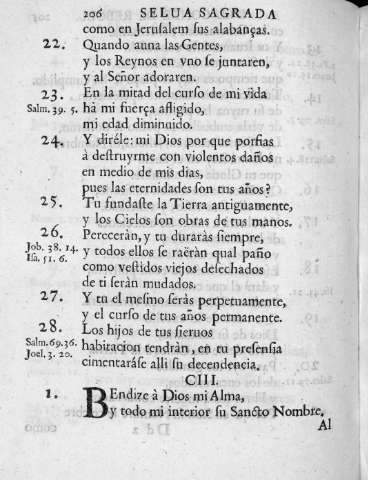 206 SELUA SAGRADA
como en Jerusalem sus alabanças.
22. Quando auna las Gentes,
y los Reynos en vno se juntaren,
y al Señor adoraren.
23. En la mitad del curso de mi vida
Salm. 39. 5. hà mi fuerça afligido,
mi edad diminuido.
24. Y diréle: mi Dios por que porfias
à destruyrme con violentos daños
en medio de mis dias,
pues las eternidades son tus años?
25. Tu fundaste la Tierra antiguamente,
y los Cielos son obras de tus manos.
26. Pereceràn, y tu duraràs siempre,
Job. 38. 14. y todos ellos se raëràn qual paño
Isa. 51. 6. como vestidos viejos desechados
de ti seràn mudados.
27. Y tu el mesmo seràs perpetuamente,
y el curso de tus años permanente.
28. Los hijos de tus sieruos
Salm. 69. 36. habitacion tendràn, en tu presensia
Joel. 3. 20. cimentaráse alli su decendencia.
CIII.
1. BEndize à Dios mi Alma,
y todo mi interior su Sancto Nombre,
Al